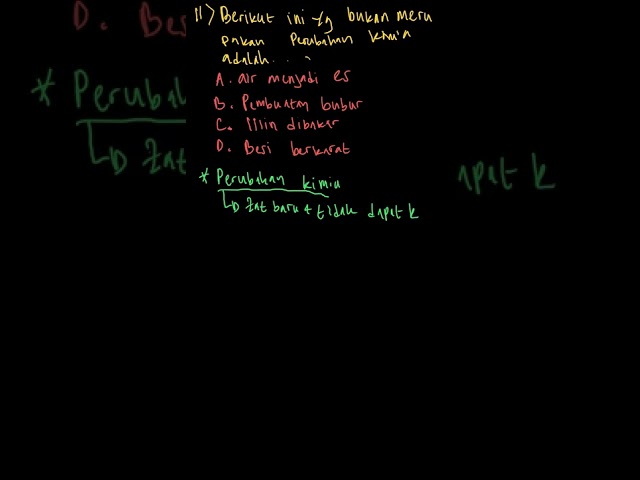 11) Berikut ini yg bukan meru
pakan Perubahan kimia
adalah. . .
A. air menjadi es
B. Pembuatan bubur
C. lilin dibakar
D. Besi berkarat
* Perubahan kimia
↳D Zat baru + tidak dapat k